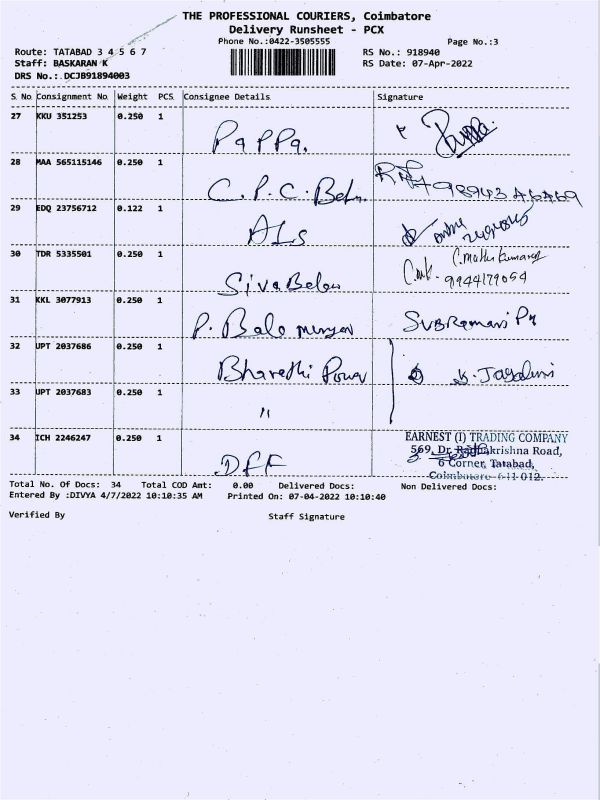 THE PROFESSIONAL COURIERS, Coimbatore
Delivery Runsheet - PCX
Phone No.:0422-3505555
Page No.:3
Route: TATABAD 3 4 5 6 7
RS No.: 918940
Staff: BASKARAN K
RS Date: 07-Apr-2022
DRS No.: DCJB91894003
S No Consignment No Weight PCS Consignee Details Signature
27 KKU 351253 0.250 1 Pappa.
28 MAA 565115146 0.250 1 C.P.C.
29 EDQ 23756712 0.122 1 ALS
30 TDR 5335501 0.250 1 Siva C. Muthu Kumaran
9944179054
31 KKL 3077913 0.250 1 P. Bala Subramani
32 UPT 2037686 0.250 1 Bharethi Power
33 UPT 2037683 0.250 1 "
34 ICH 2246247 0.250 1 DFF EARNEST (I) TRADING COMPANY
569, Dr. Radhakrishna Road,
6 Corner, Tatabad,
Coimbatore - 641 012.
Total No. Of Docs: 34 Total COD Amt: 0.00 Delivered Docs: Non Delivered Docs:
Entered By :DIVYA 4/7/2022 10:10:35 AM Printed On: 07-04-2022 10:10:40
Verified By Staff Signature